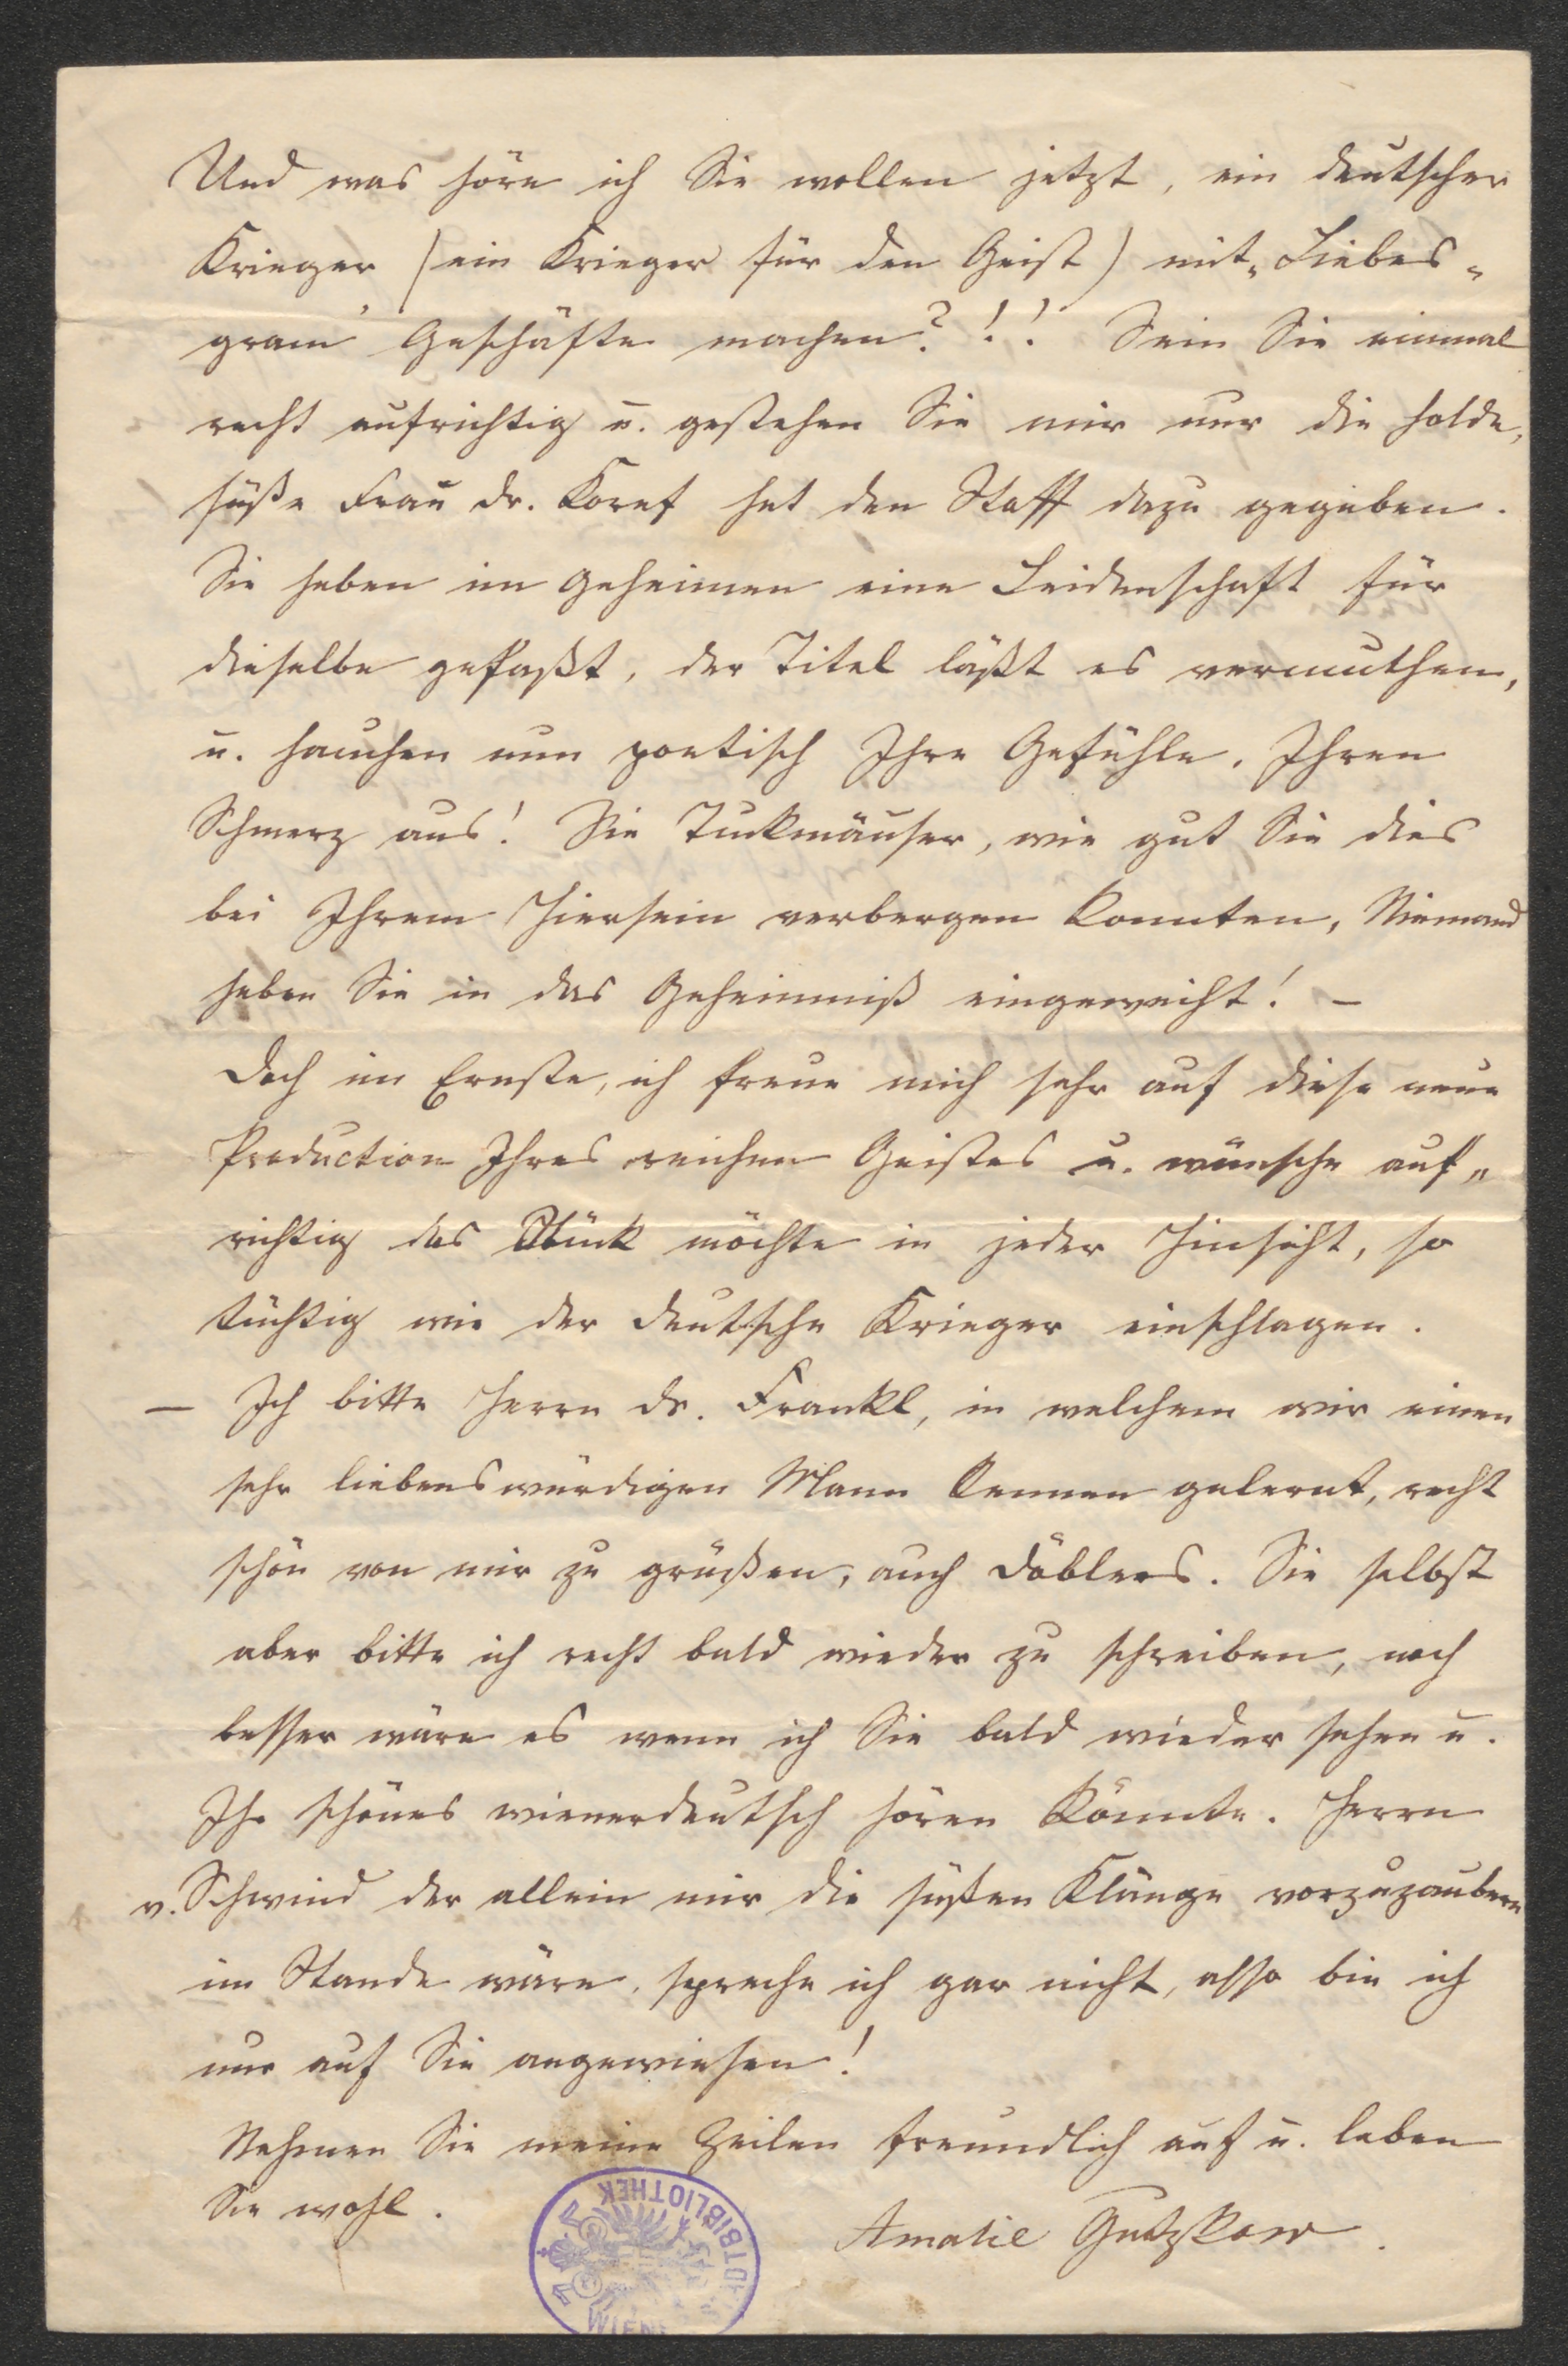 Und was höre ich Sie wollen jetzt, ein deutscher
Krieger (ein Krieger für den Geist) mit „Liebes-
gram“ Geschäfte machen?!! Sein Sie einmal
recht aufrichtig u. gestehen Sie mir nur die holde,
süße Frau Dr. Koref hat den Stoff dazu gegeben.
Sie haben im Geheimen eine Leidenschaft für
dieselbe gefaßt, der Titel läßt es vermuthen,
u. hauchen nun poetisch Ihre Gefühle, Ihren
Schmerz aus! Sie Tuckmäuser, wie gut Sie dies
bei Ihrem Hiersein verbergen konnten, Niemand
haben Sie in das Geheimniß eingeweiht! —
Doch im Ernste, ich freue mich sehr auf diese neue
Production Ihres reichen Geistes u. wünsche auf-
richtig das Stück möchte in jeder Hinsicht, so
tüchtig wie der deutsche Krieger einschlagen.
— Ich bitte Herrn Dr. Frankl, in welchem wir einen
sehr liebenswürdigen Mann kennen gelernt, recht
schön von mir zu grüßen, auch Döblers. Sie selbst
aber bitte ich recht bald wieder zu schreiben, noch
besser wäre es wenn ich Sie bald wieder sehen u.
Ihr schönes wienerdeutsch hören könnte. Herrn
v. Schwind der allein mir die süßen Klänge vorzuzaubern
im Stande wäre, spreche ich gar nicht, also bin ich
nur auf Sie angewiesen!
Nehmen Sie meine Zeilen freundlich auf u. leben
Sie wohl.
Amalie Gutzkow.
STADTBIBLIOTHEK
WIEN